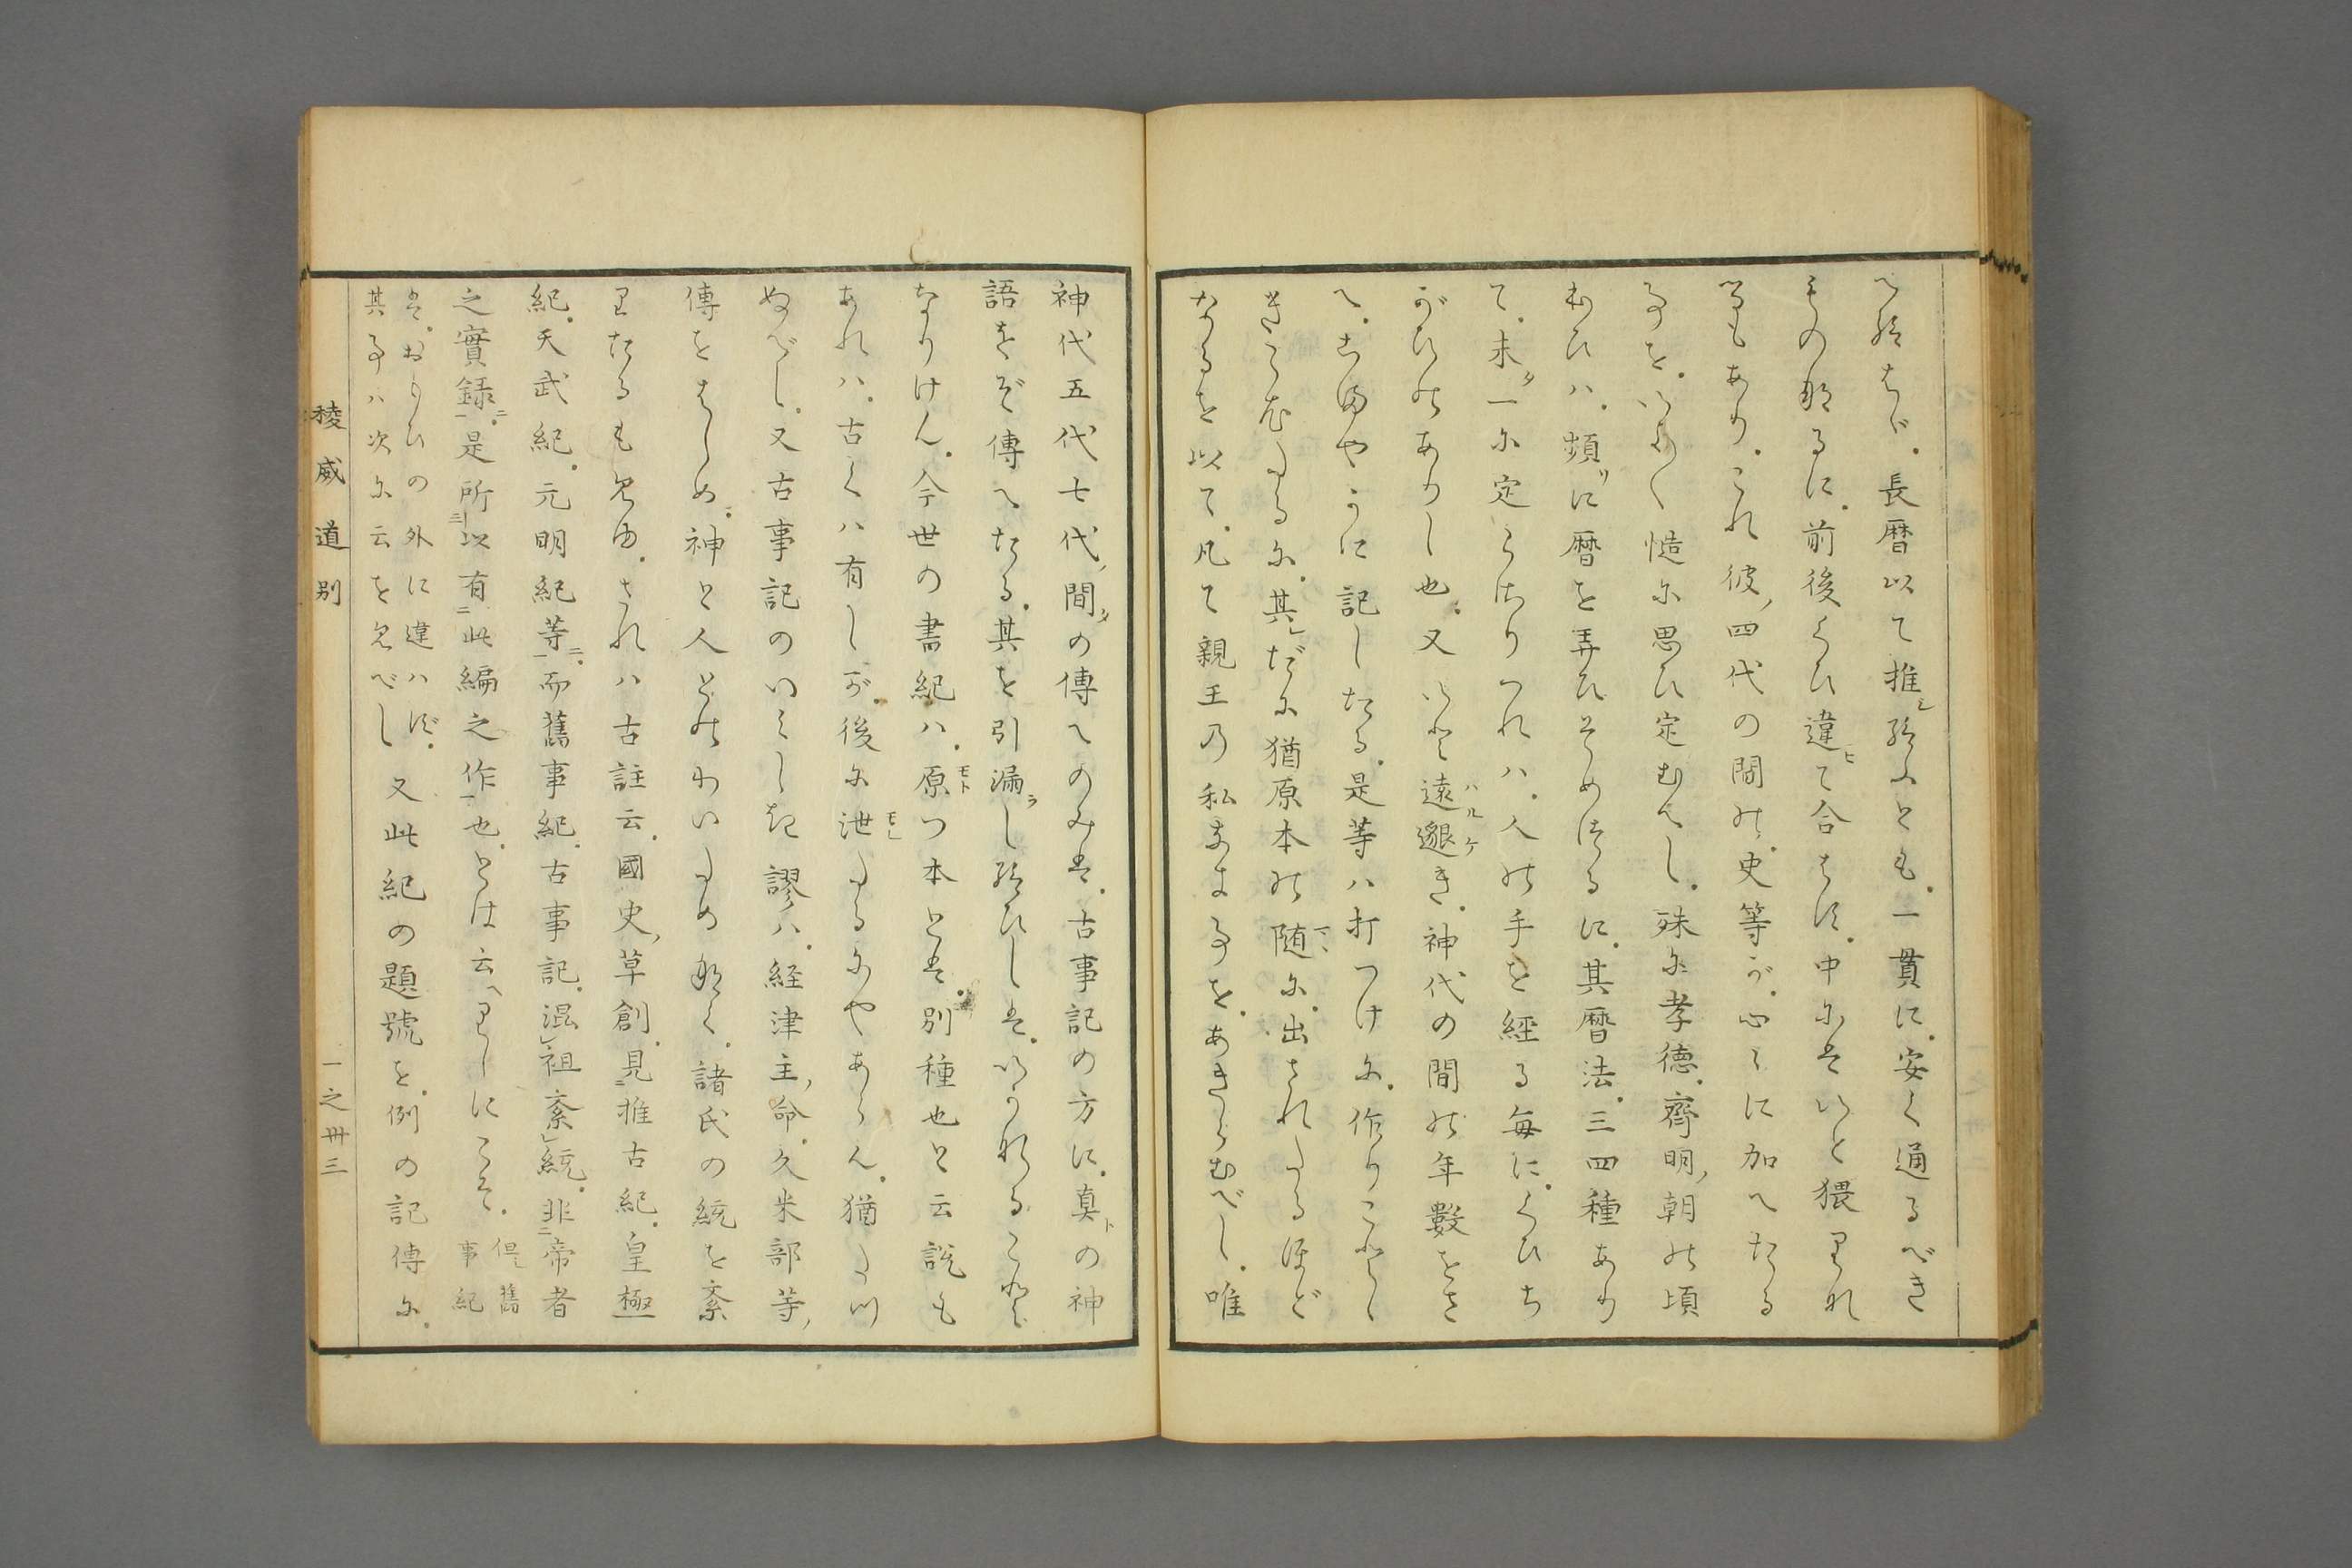 へ給はゞ。長暦以て推シ給ふとも。一貫に。安く通るべき
もの那るに。前後くひ違ヒて合はず。中にはいと猥りなれ
るもあり。これ彼ノ四代の間の。史等が。心々に加へたる
事を。いふ〳〵慥に思ひ定むべし。殊に孝徳。齊明ノ朝の頃
おひハ。頻リに暦を弄ひそめける に。其暦法。三四種あり
て。未タ一に定こまりつれハ。人の手を經る毎に。くひち
がひのありし也。又いと遠邈ハルケき。神代の間の年數をさ
へ。こまやかに記したる。是等ハ打つけに。作りこと
きこえたるに。其レだに猶原本の随マヽに。出されたるほど
なるを以て。凡て親王の私なき事を。あきらむべし。唯
神代五代七代ノ間タの傳へのみは。古事記の方に。真トの神
語をぞ傳へたる。其を引漏ラし給ひしは。いかなること
なりけん。今世の書紀ハ。原モトつ本とは。別種也と云説も
あれハ。古くハ有しが。後に泄モレたるにやあらん。猶たつ
ぬべし。又古事記のいみしき謬ハ。経津主ノ命。久米部等ノ
傳をはしめ。神と人とのわいため那く。諸氏の統を紊
りたるも見ゆ。されハ古註云。國史ノ草創。見二推古紀。皇極
紀。天武紀。元明紀等一。而舊事紀。古事記。混レ祖紊レ統。非二帝者
之實録一。是所三以有二此編之作一也。とは云へりしにこそ。但シ舊事紀
は。おもひの外に違ハず。其事ハ次に云を見べし 又此紀の題號を。例の記傳に。
稜威道別 一之卅三